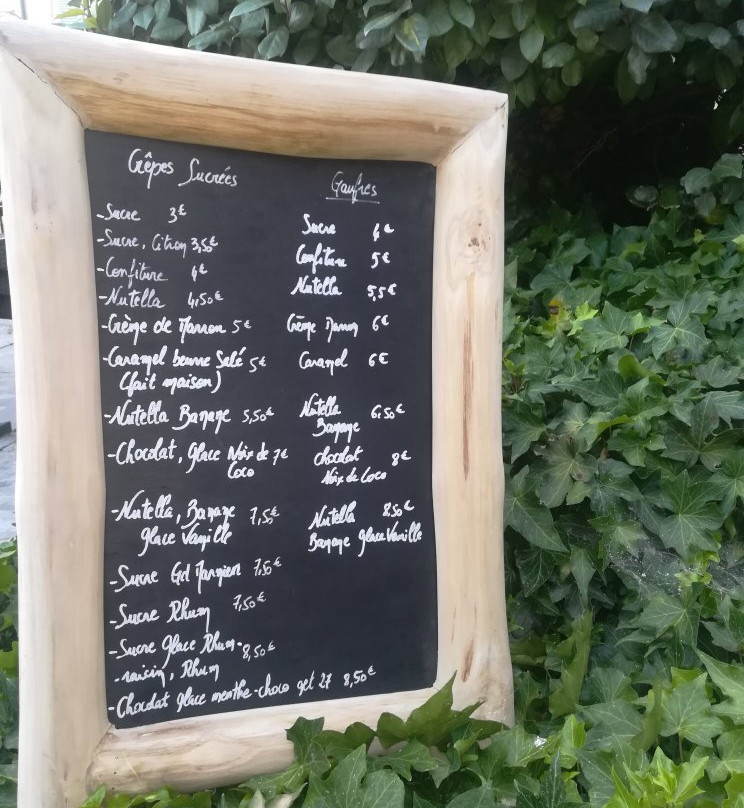 Crêpes Sucrées
-Sucre 3€
-Sucre, Citron 3,50€
-Confiture 4€
-Nutella 4,50€
-Crème de Marron 5€
-Caramel beurre Salé 5€
(fait maison)
-Nutella Banane 5,50€
-Chocolat, glace Noix de 7€
Coco
-Nutella, Banane 7,50€
glace Vanille
-Sucre Gd Marnier 7,50€
-Sucre Rhum 7,50€
-Sucre glace Rhum- 8,50€
-raisin, Rhum
-Chocolat glace menthe-choco get 27 8,50€
Gaufres
Sucre 4€
Confiture 5€
Nutella 5,5€
Crème Marron 6€
Caramel 6€
Nutella 6,50€
Banane
chocolat 8€
Noix de Coco
Nutella 8,50€
Banane glace Vanille